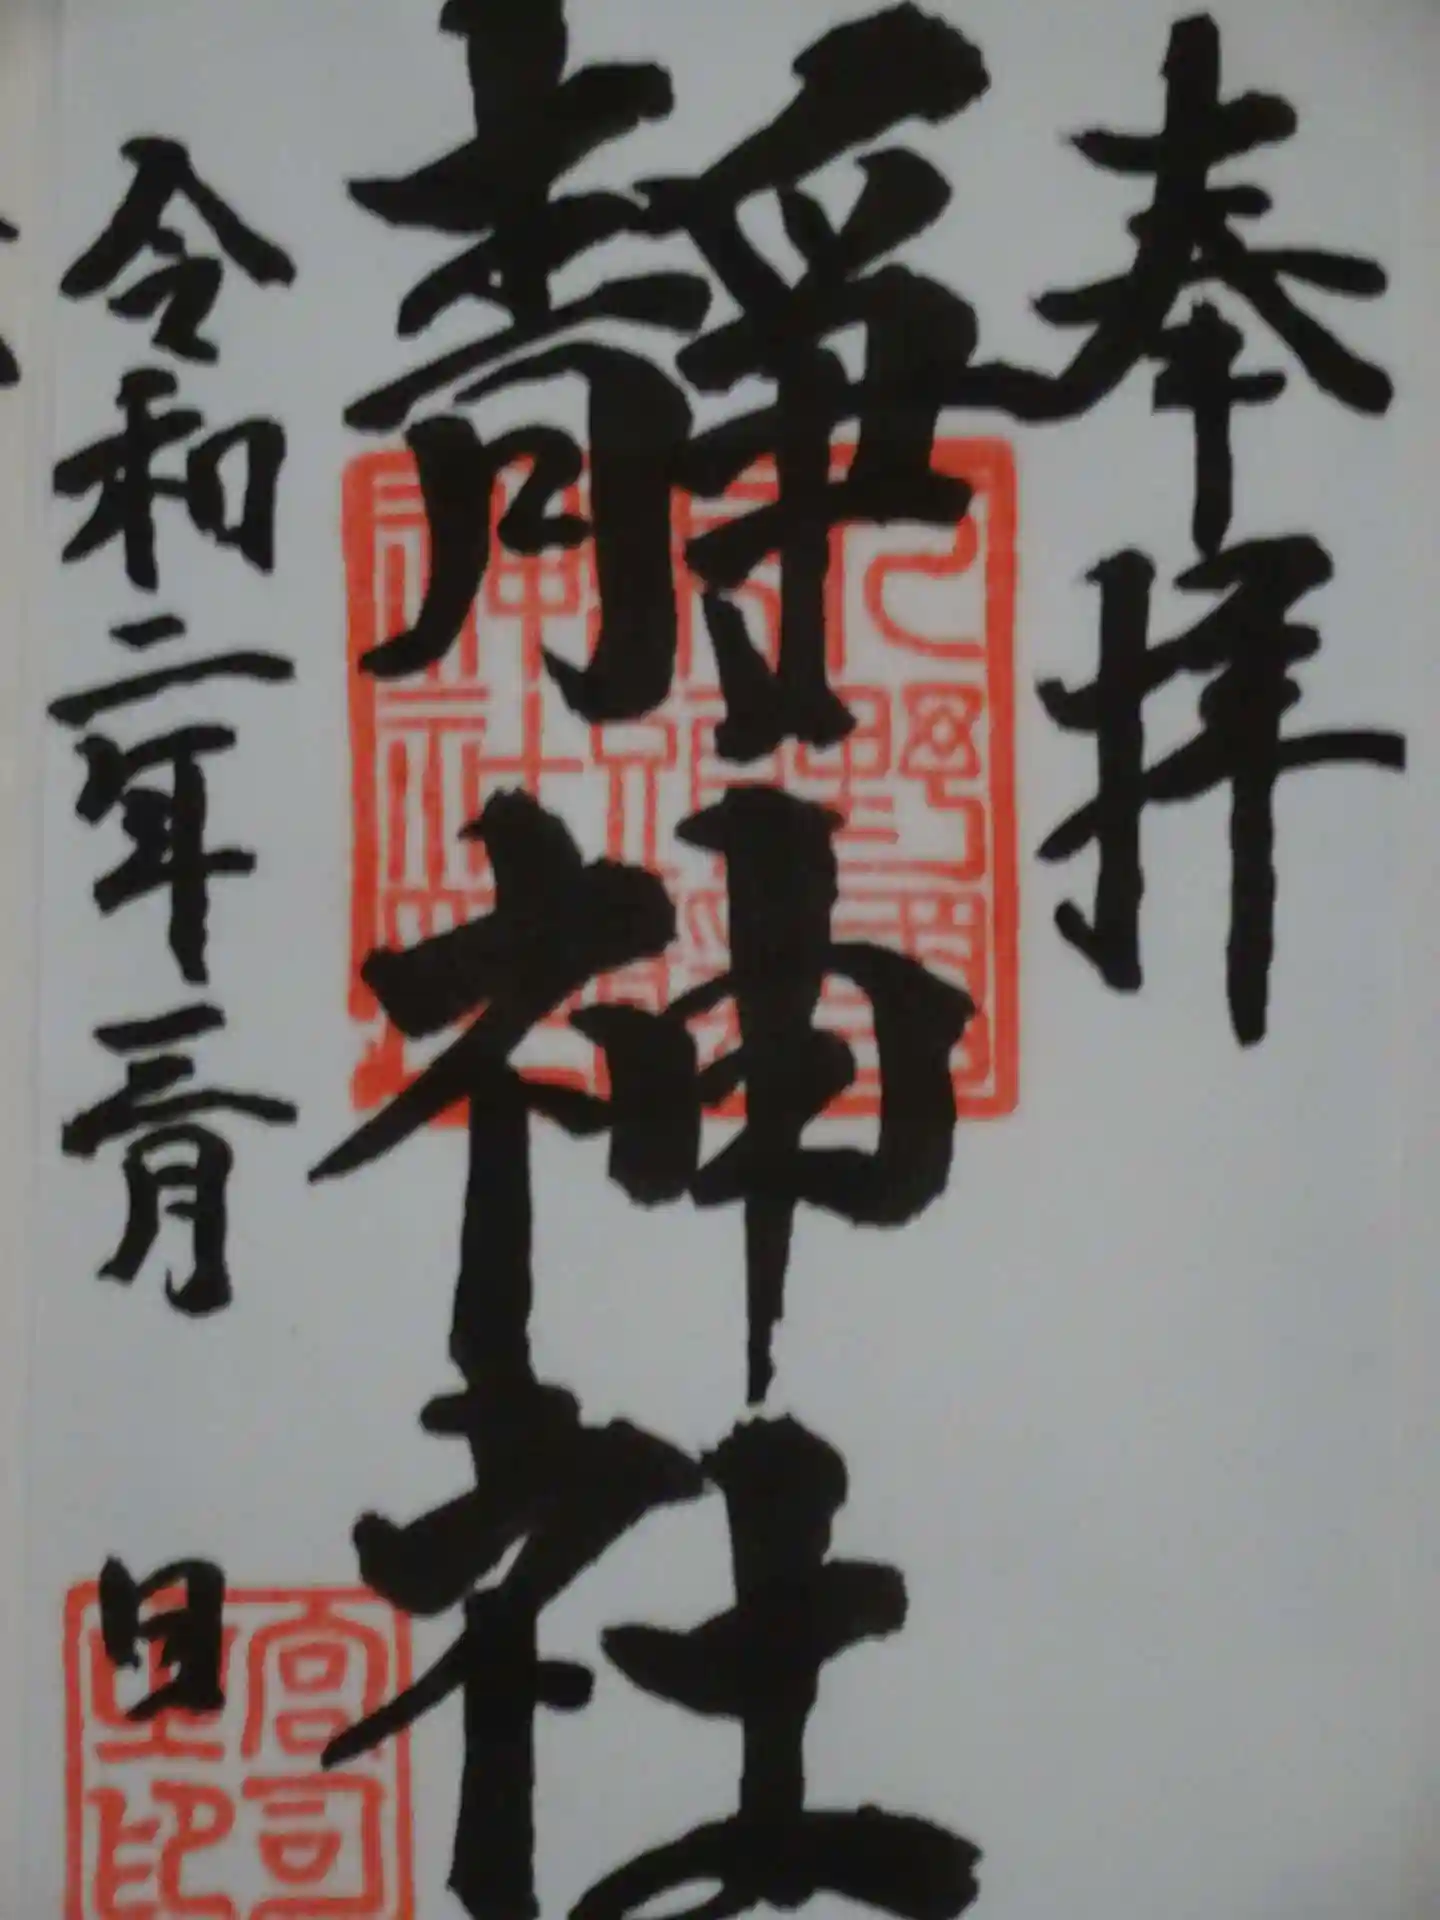 奉拝
靜神社
令和二年三月 日
宮司
之印